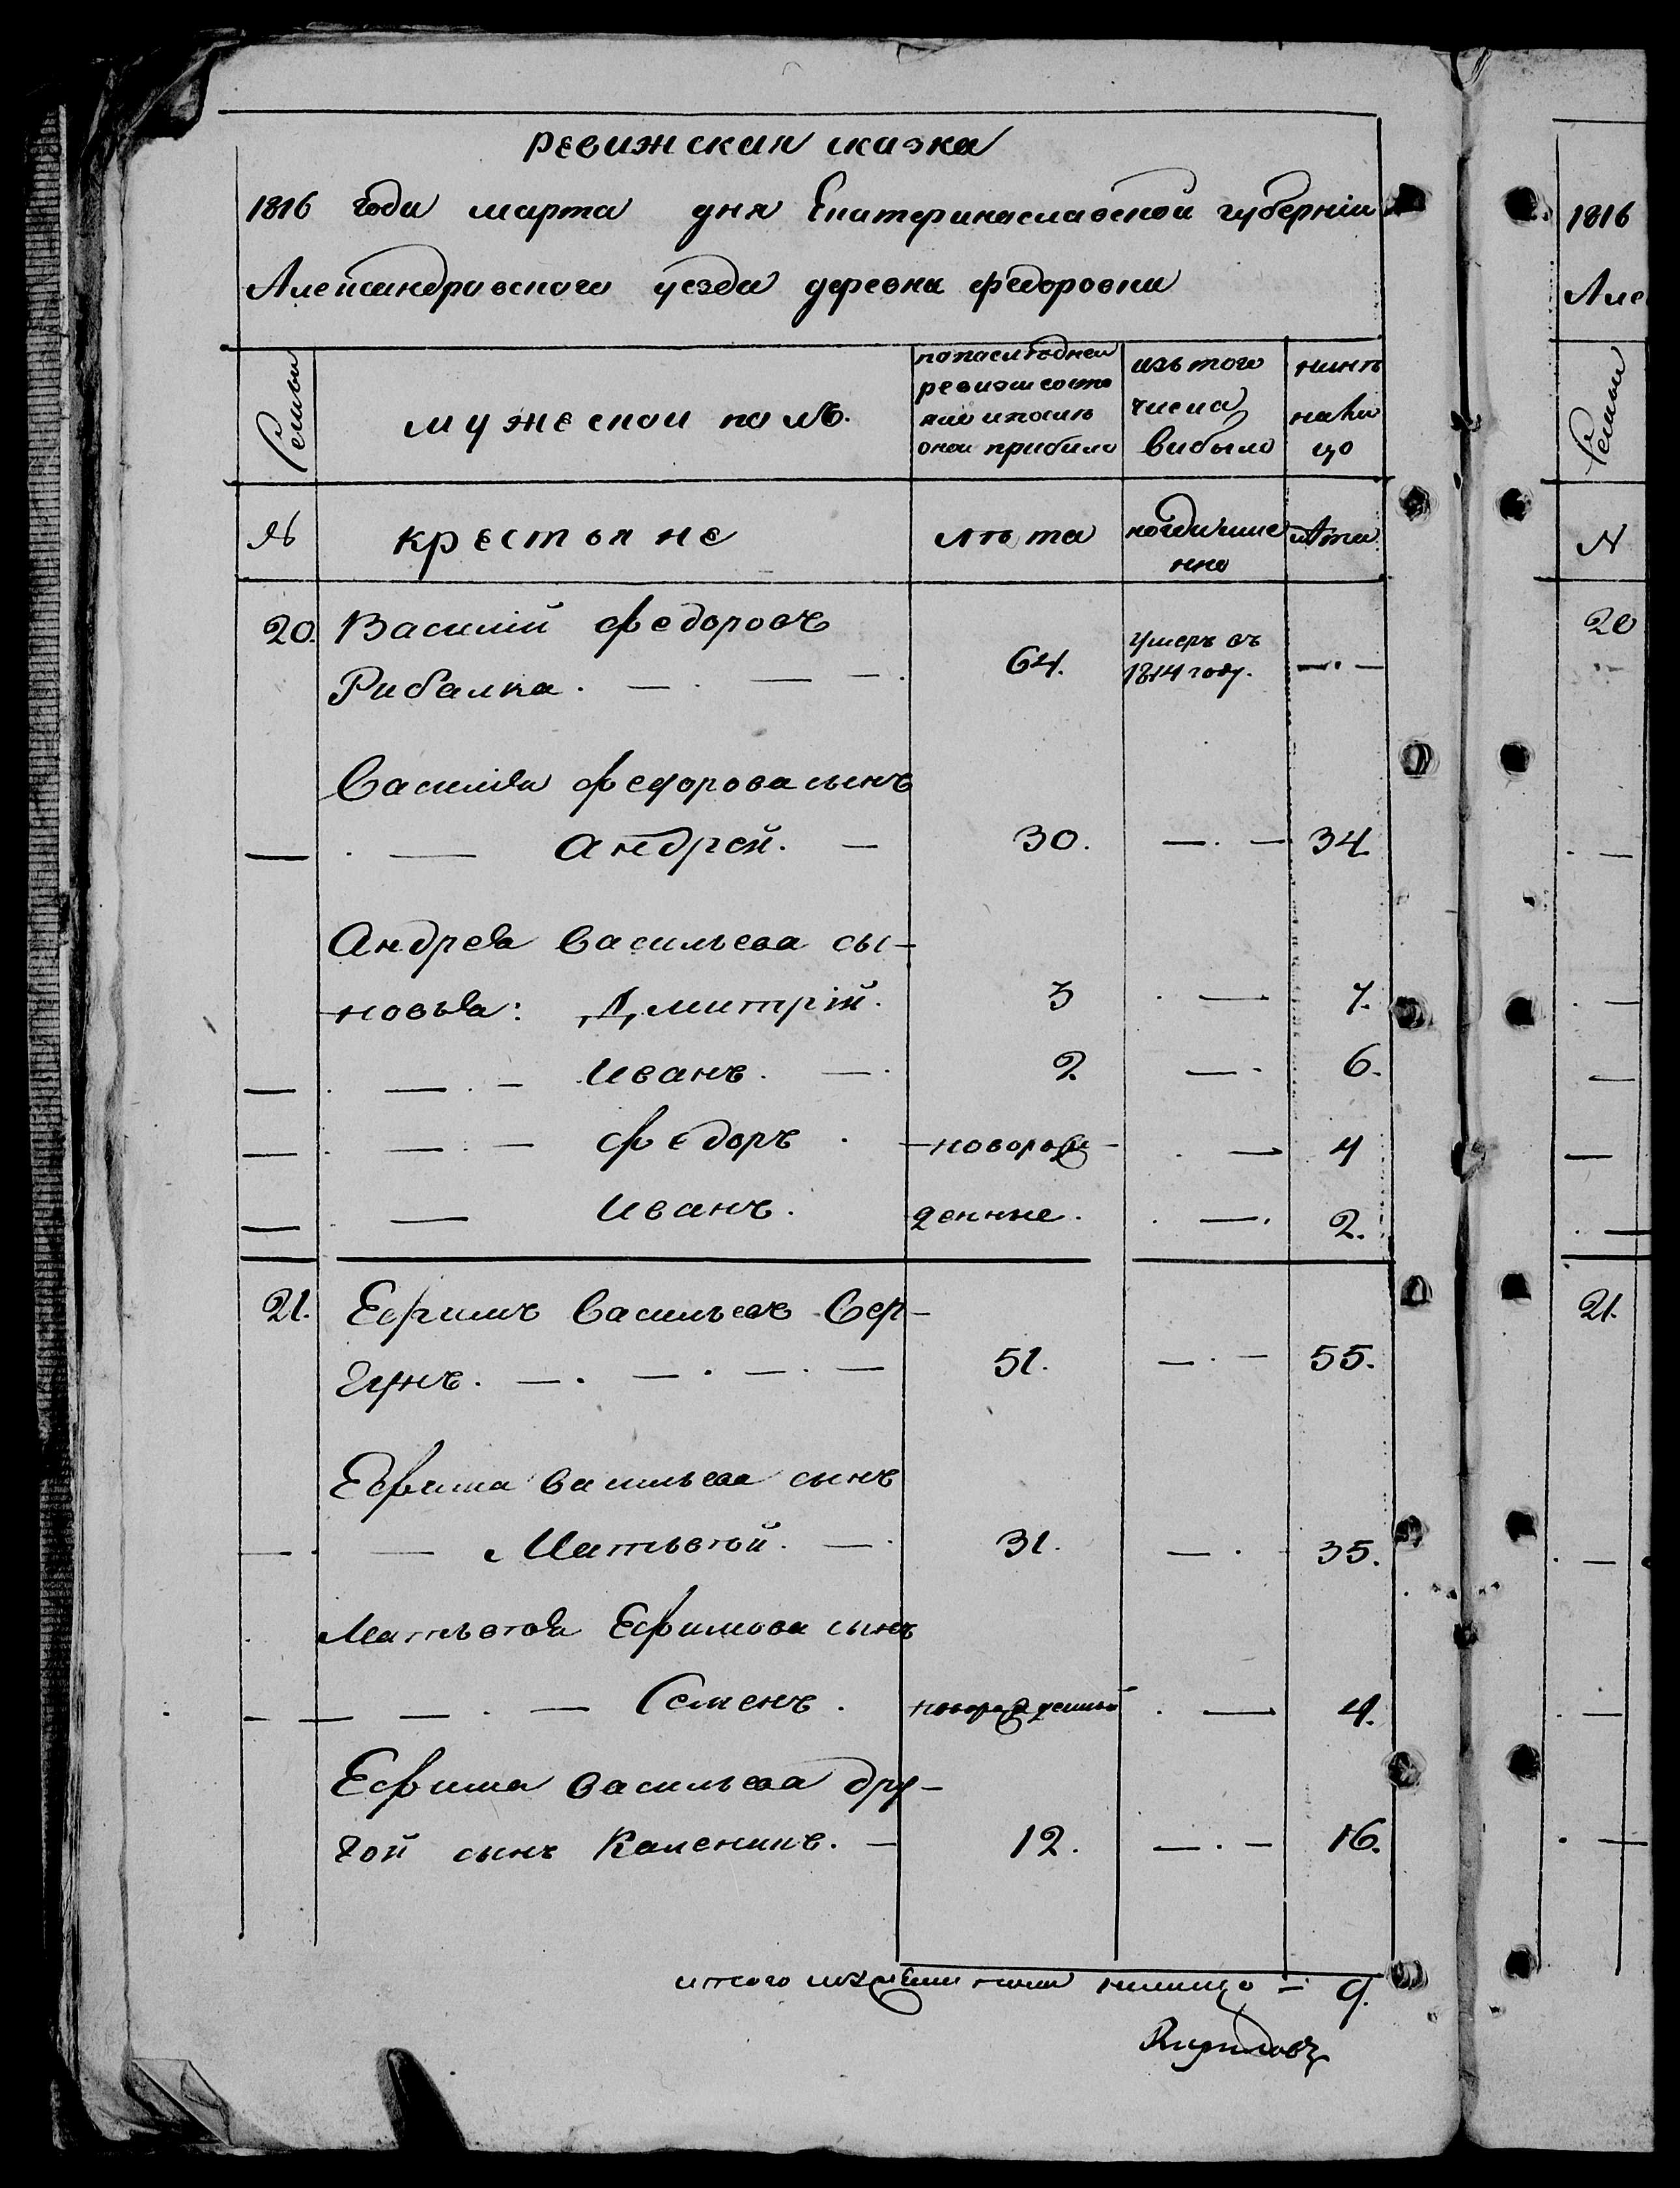 Ревижская сказка
1816 года марта дня Екатеринославской губерніи
Александровского уезда деревни Федоровки
Семьи
мужескои полъ.
попоследней
ревизии состо
яло и после
оной прибыло
изъ того
числа
выбыло
нинѣ
на ли
цо
№
крестьяне
лѣта
когда имя
нно
лѣта
20. Василій Федоровъ
Рибалка. — . — — . 64. умеръ въ 1814 году. — . —
Василія Федорова сынъ
— . — Андрей. — 30. — . — 34
Андрея Васильева сы-
новья: Дмитрій. 3 . — 7.
— . — . — Иванъ. — . 2 — . 6.
— . — . — Федоръ . новорож- . — 4
— . — Иванъ. денные. . — . 2.
21. Ефимъ Васильевъ Сер-
гунъ. — . — . — . — 51. — . — 55.
Ефима Васильева сынъ
— . — Матвѣй. — . 31. — . 35.
Матвѣя Ефимова сынъ
— — — . — Семенъ . новорожденный . — 4.
Ефима Васильева дру-
гой сынъ Каленикъ. — 12. — . — 16.
итого мужеска пола налицо — 9.
1816
Але
Семьи
№
20
21.